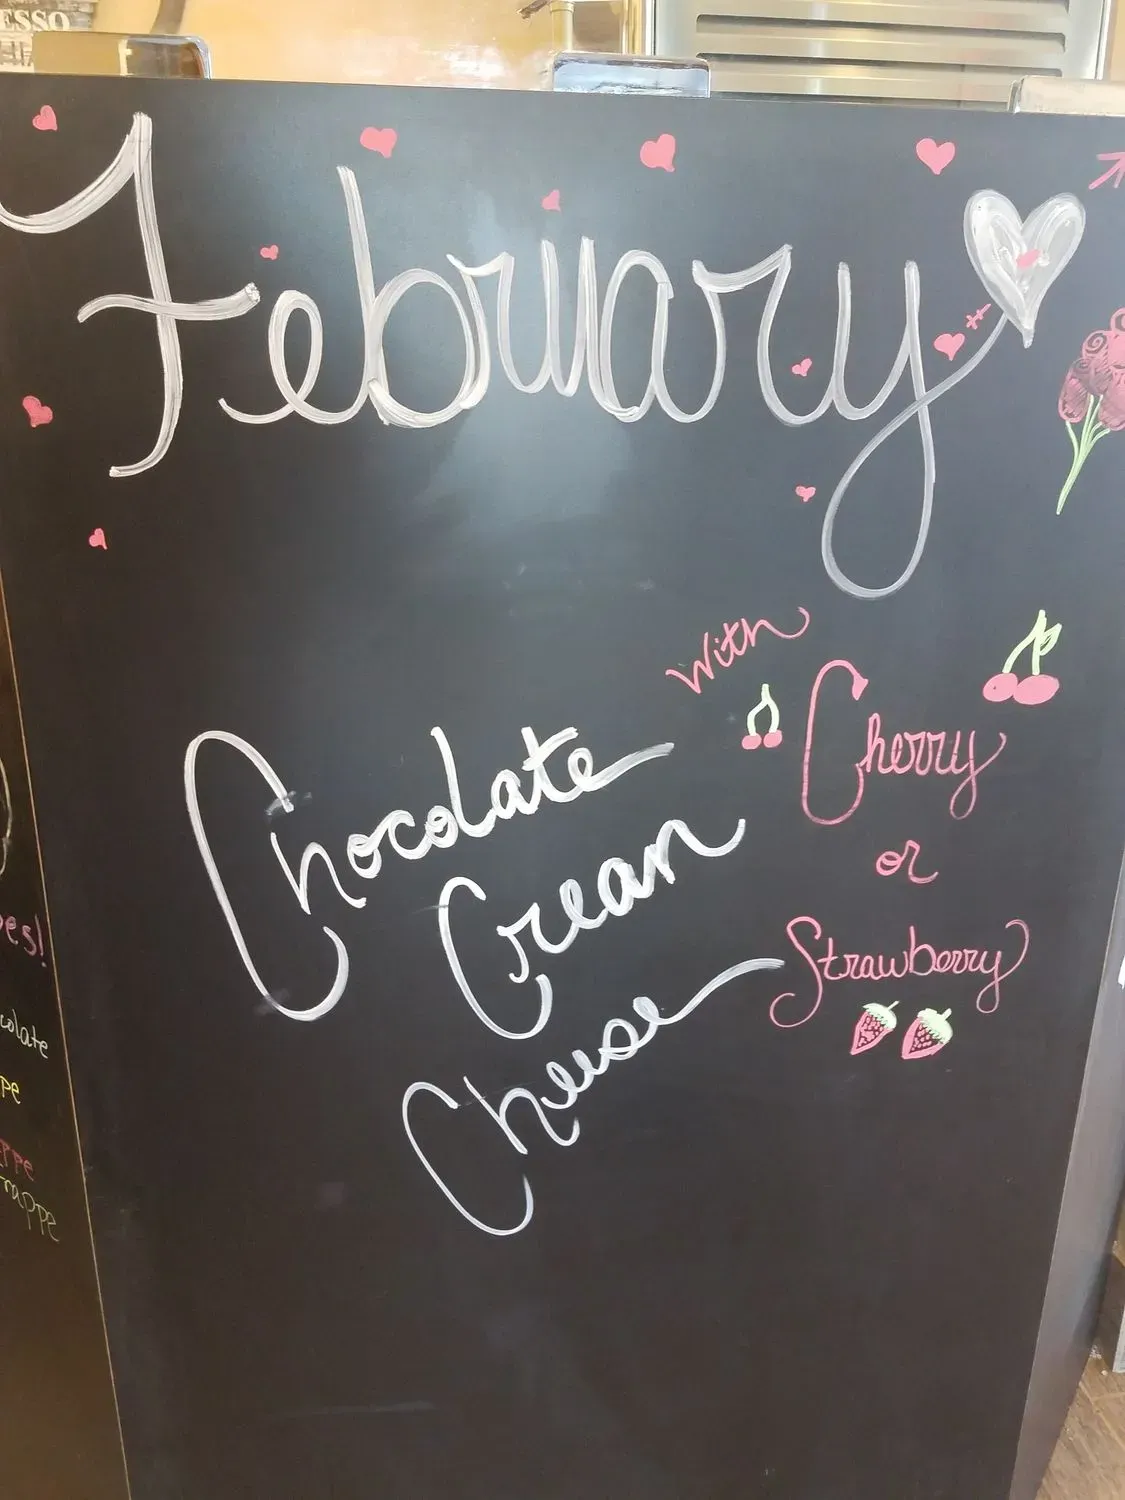 ESSO
February
With
Cherry
or
Strawberry
Chocolate
Cream
Cheese
pes!
colate
pe
ppe
rappe